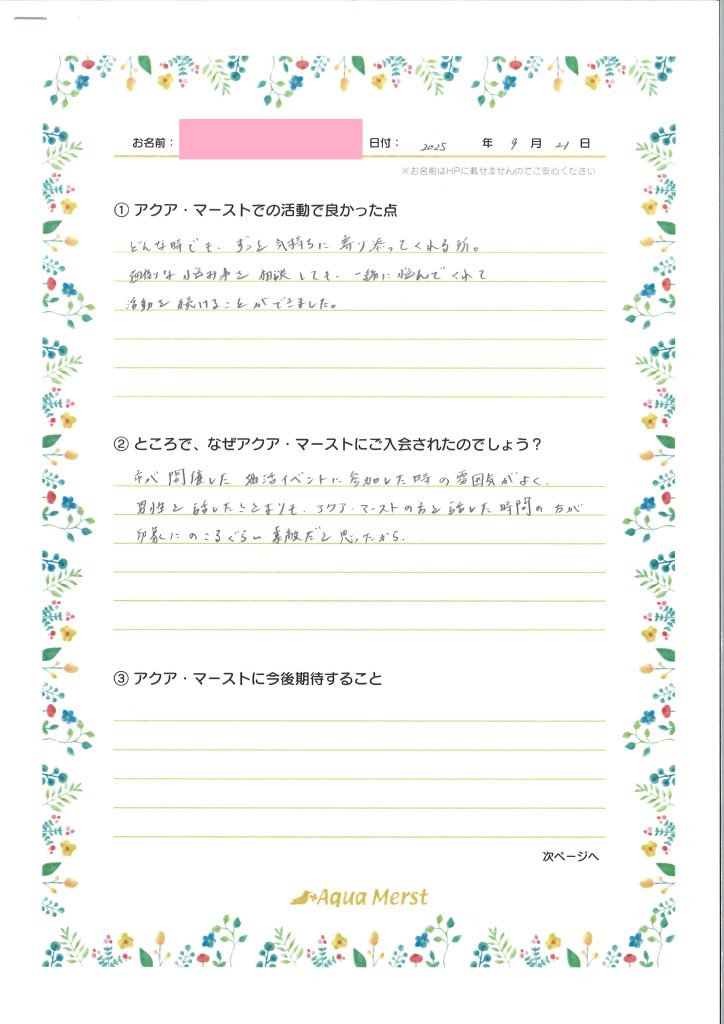 お名前： 日付： 2025 年 9 月 21 日
※お名前はHPに載せませんのでご安心ください
① アクア・マーストでの活動で良かった点
どんな時でも、ずっと気持ちに寄り添ってくれる所。
面倒な悩み事を相談しても、一緒に悩んでくれて
活動を続けることができました。
② ところで、なぜアクア・マーストにご入会されたのでしょう？
市が開催した婚活イベントに参加した時の雰囲気がよく、
男性と話したことよりも、アクア・マーストの方と話した時間の方が
印象にのこるぐらい素敵だと思ったから。
③ アクア・マーストに今後期待すること
次ページへ
Aqua Merst